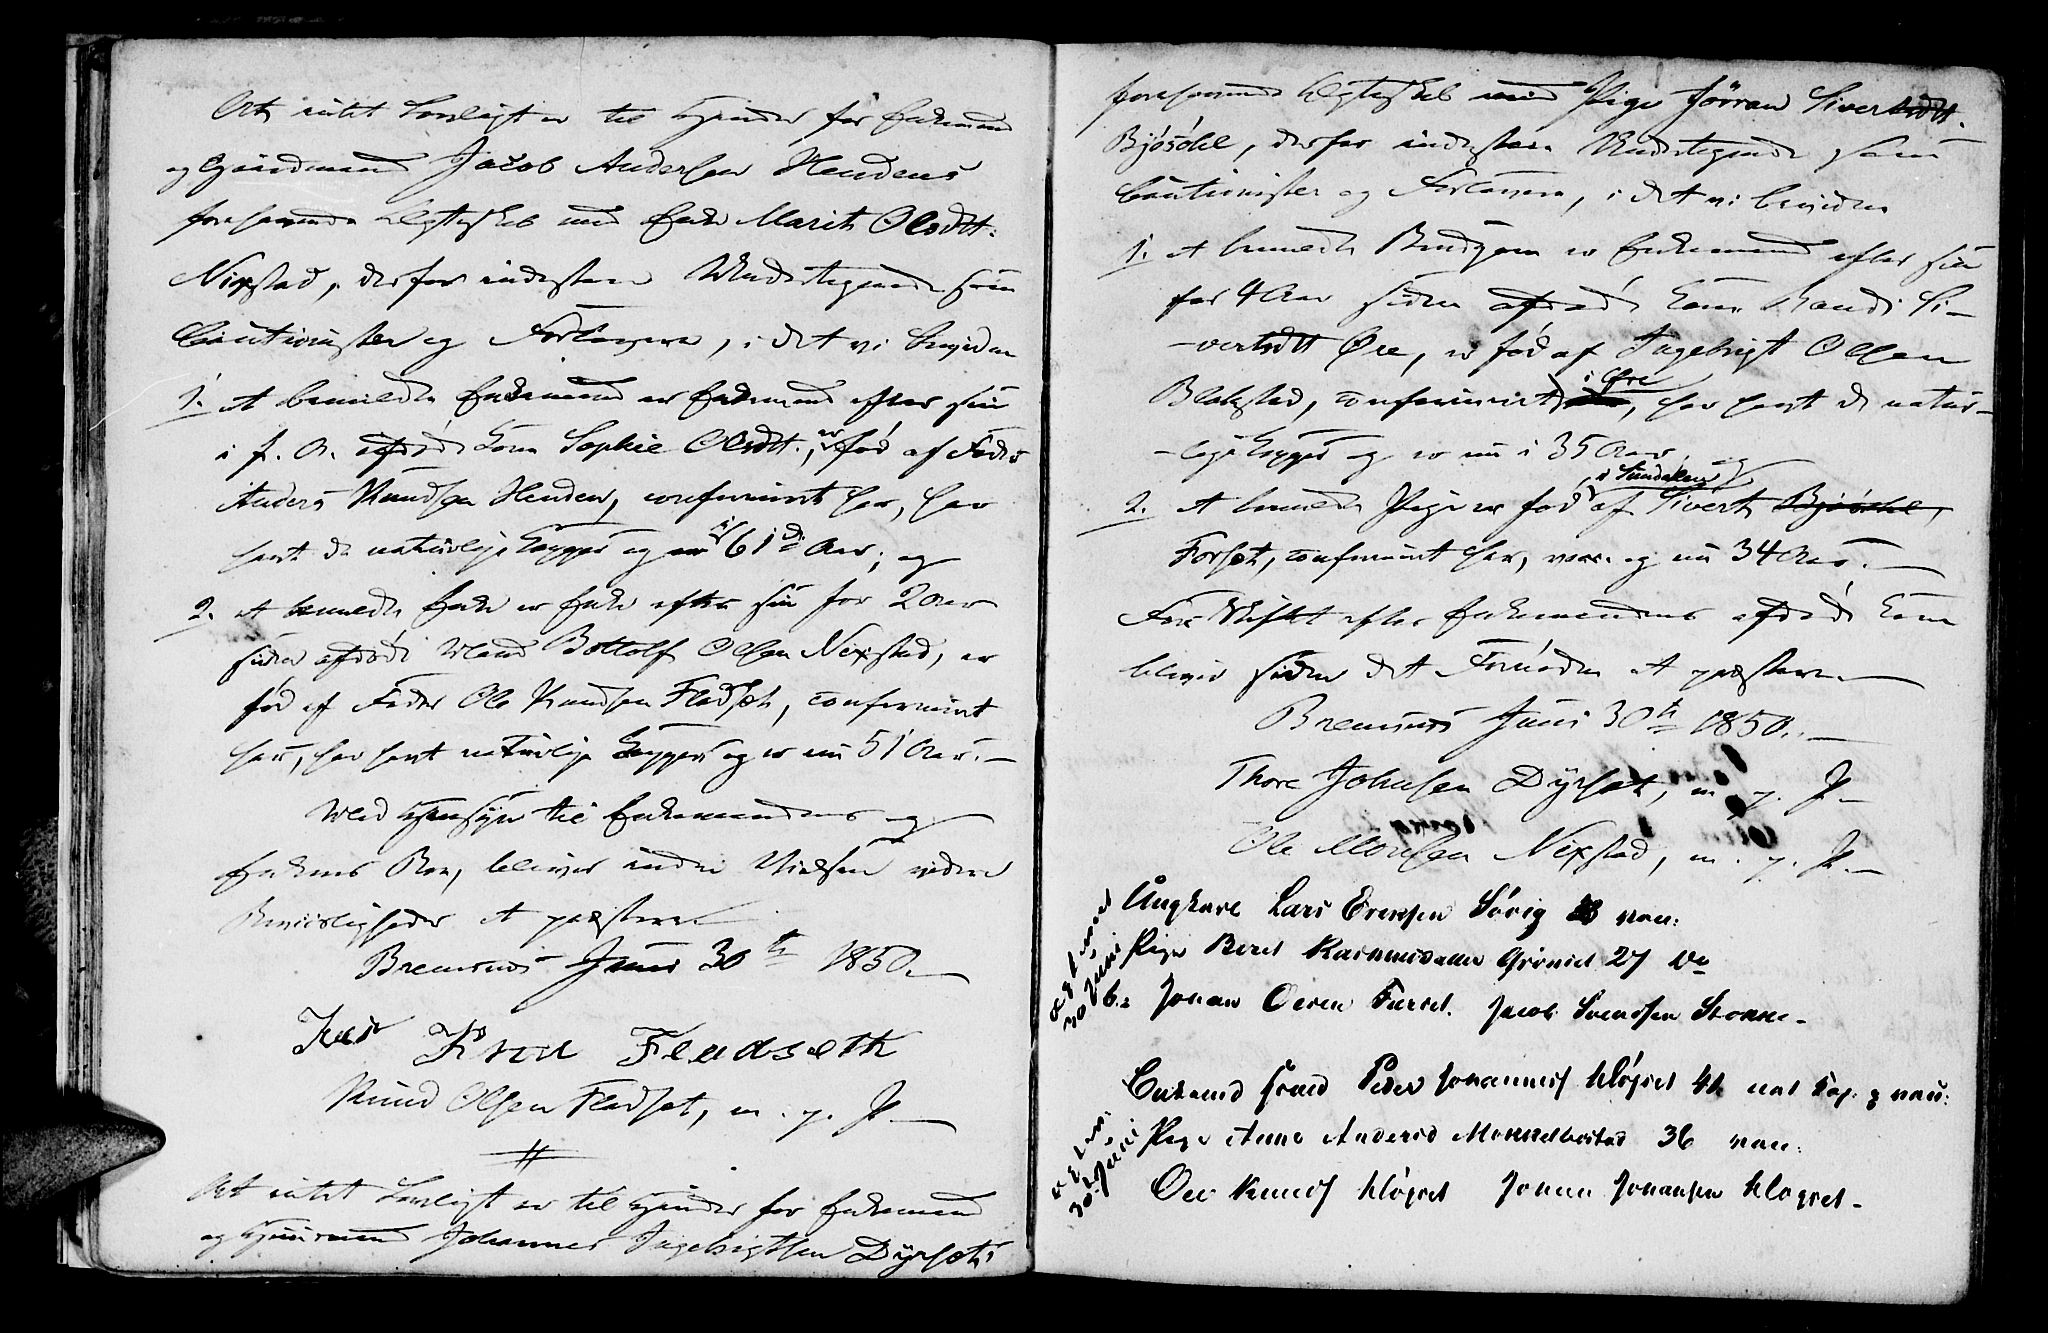 At intet Lovligt er til Hinder for Enkemand
og Gaardmand Jacob Andersen Hendens
forehavende Ægteskab med Enke Marit Olsdtt.
Nixstad, derfor indestaae Undertegnede som
Cautionister og Forlovere, i det vi bevidne
1. At bemeldte Enkemand er Enkemand efter sin
i f. A. afdøde Kone Sophie Olsdtt., er fød af Fader
Anders Knudsen Henden, confirmeret her, har
havt de naturlige Kopper og er i 61de Aar; og
2. at bemeldte Enke er Enke efter sin for 2 Aar
siden afdøde Mand Bottolf Olsen Nixstad, er
fød af Fader Ole Knudsen Fladset, confirmeret
her, har havt naturlige Kopper og er nu 51 Aar.
Med Hensyn til Enkemandens og
Enkens Boe, bliver inden Vielsen videre
Beviisligheder at præstere
Bremsnes Juni 30th 1850.
Knud Fladsæth
Knud Olsen Fladset, m. p. P.
At intet Lovligt er til Hinder for Enkemand
og Gaardmand Johannes Ingebrigtsen Dyrsets
forehavende Ægteskab med Pige Jórran Sivertsdtt.
Bjósdel, derfor indestaae Undertegnede som
Cautionister og Forlovere, i det vi bevidne
1. At bemeldte Brudgom er Enkemand efter sin
for 4 Aar siden afdøde Kone Randi Si-
-vertsdtt Øre, er fød af Ingebrigt Olsen
Blakstad, confirmeret i Øre, har havt de natur-
-lige Kopper og er nu i 35 Aar, og
2. At bemeldte Pige er fød i Sundalen af Sivert Bjósdel,
Forset, confirmeret her, vacc. og nu 34 Aar.
For Skiftet efter Enkemandens afdøde Kone
bliver siden det Fornødne at præstere
Bremsnes Juni 30th 1850.
Thore Johnsen Dyrset, m. p. P.
Ole Monsen Nixstad, m. p. P.
Ungkarl Lars Eriksen Sóvig vac:
Pige Beret Rasmusdatter Grónset 27 do
Johan Olsen Furset. Jacob Svendsen Stokke
30 Juni
Enkemand Peder Johannes Klógset 42 nat Kop. & vac:
Pige Anne Andersd Monnelbostad 36 vac:
Ole Knuds Klógset Johan Johansen Klogset
30 Juni